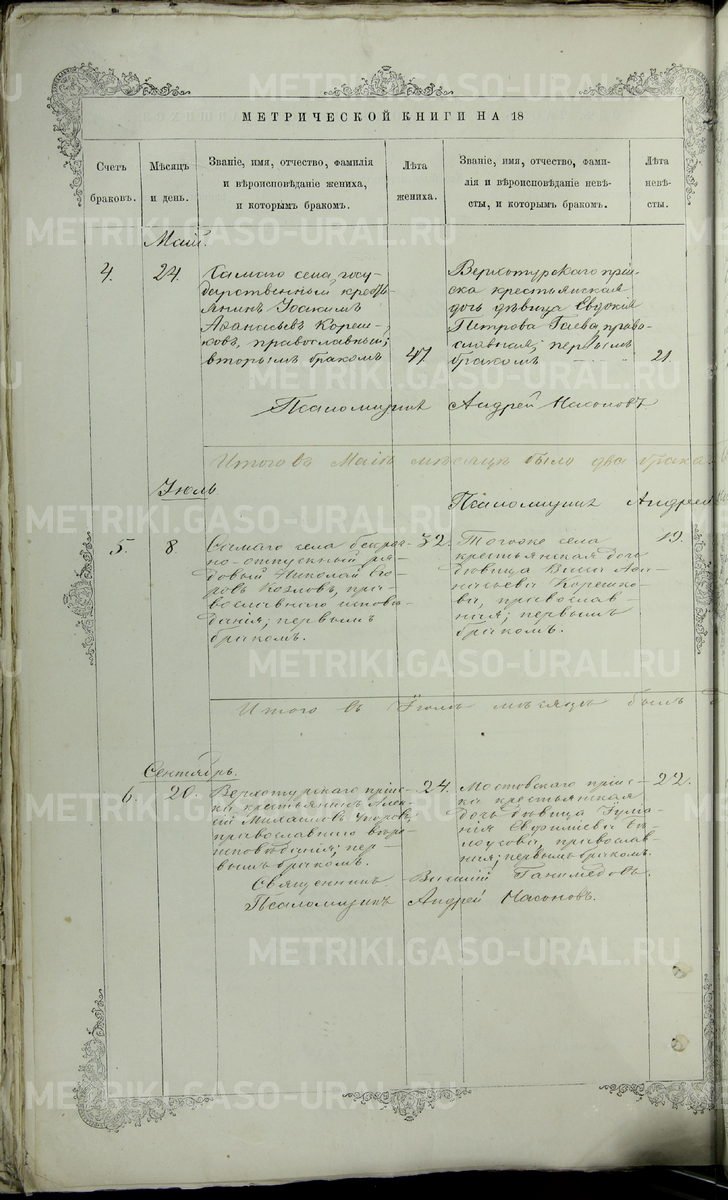 МЕТРИЧЕСКОЙ КНИГИ НА 18
Счетъ браковъ.
Мѣсяцъ и день.
Званіе, имя, отчество, фамилія
и вѣроисповѣданіе жениха,
и которымъ бракомъ.
Лѣта жениха.
Званіе, имя, отчество, фами-
лія и вѣроисповѣданіе невѣ-
сты, и которымъ бракомъ.
Лѣта невѣ-
сты.
Май.
4.
24.
Самаго села, госу-
дарственный кресть-
янинъ Іоакимъ
Аѳанасьевъ Кореш-
ковъ, православный;
вторымъ бракомъ
47
Верхотурскаго пріи-
ска крестьянская
дочь дѣвица Евдокія
Петрова Гаева, право-
славная; первымъ
бракомъ
21.
Псаломщикъ Андрей Насоновъ
Итого въ Маѣ мѣсяцѣ было два брака
Іюль
Псаломщикъ Андрей
5.
8
Самаго села безсроч-
но-отпускный ря-
довый Николай Его-
ровъ Козловъ, пра-
вославнаго исповѣ-
данія; первымъ
бракомъ.
32.
Тогоже села
крестьянская дочь
дѣвица Аѳа-
насьева Корешко-
ва, православ-
ная; первымъ
бракомъ.
19.
Итого въ Іюлѣ мѣсяцѣ былъ
Сентябрь.
6.
20.
Верхотурскаго пріис-
ка крестьянинъ Алек-
сѣй
православнаго вѣро-
исповѣданія; пер-
вымъ бракомъ.
24.
Мостовскаго пріис-
ка крестьянская
дочь дѣвица
Евфиміева Бѣ-
лоусова, православ-
ная; первымъ бракомъ.
22.
Священникъ Василій Ганимедовъ.
Псаломщикъ Андрей Насоновъ.
METRIKI.GASO-URAL.RU